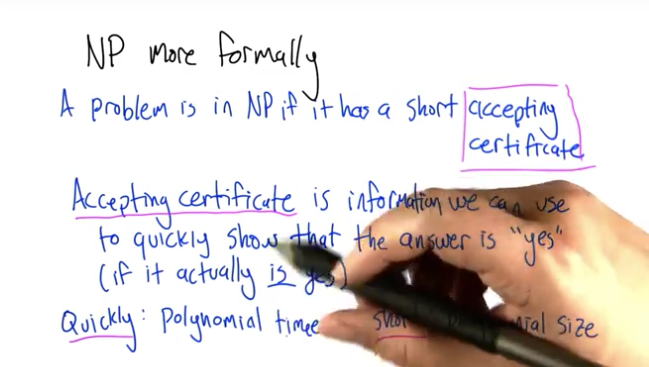 NP more formally
A problem is in NP if it has a short accepting
certificate
Accepting certificate is information we can use
to quickly show that the answer is "yes"
(if it actually is yes)
Quickly: Polynomial time size